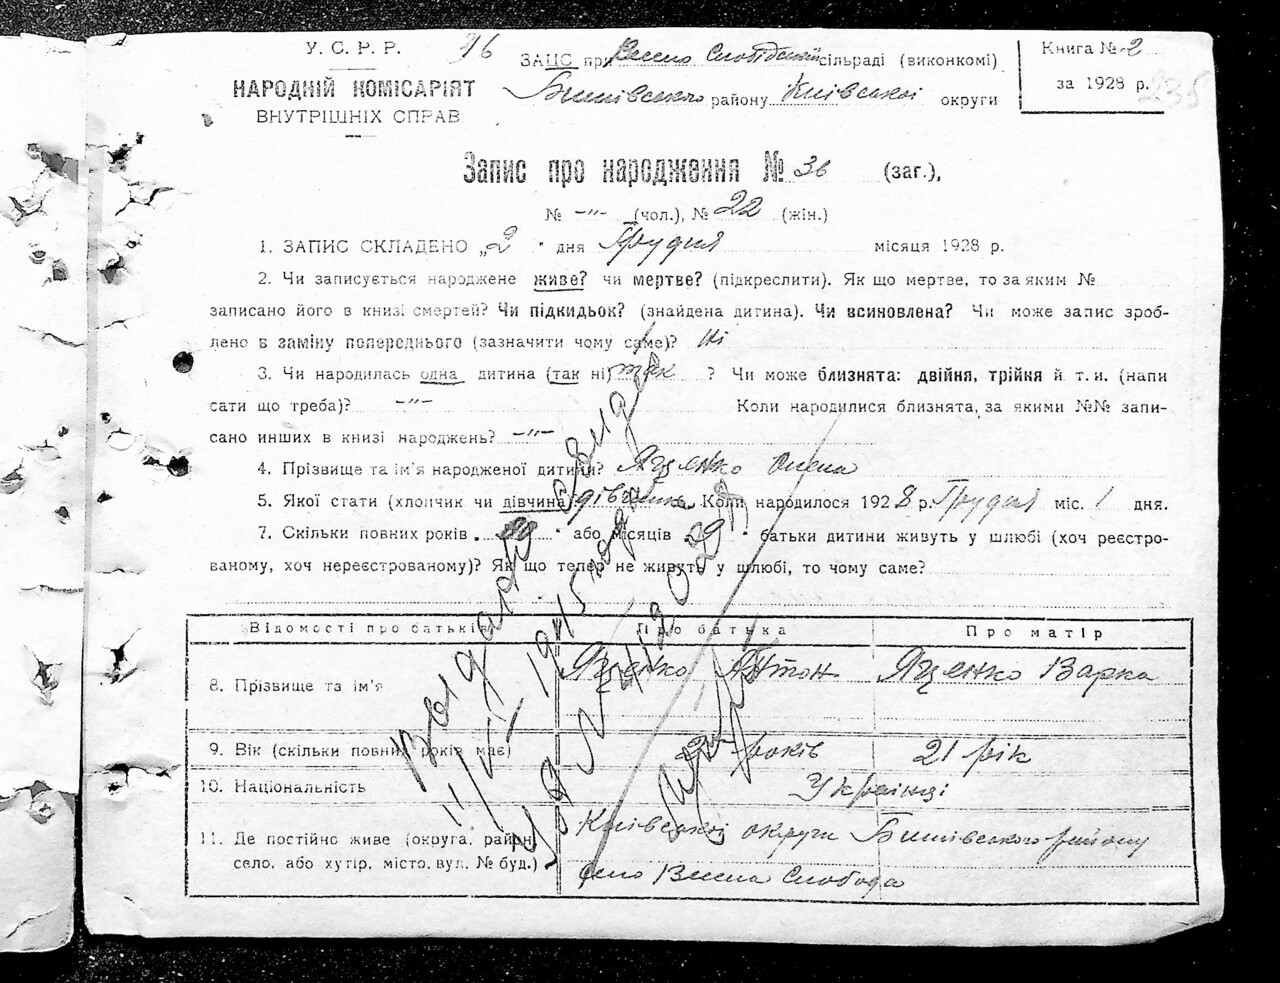 У. С. Р. Р.
96
ЗАЦС при Велико Слобідській сільраді (виконкомі)
Книга № 2
НАРОДНІЙ КОМІСАРІЯТ
Бишівського району Київської округи
за 1928 р.
235
ВНУТРІШНІХ СПРАВ
Запис про народження № 36 (заг.),
№ -"- (чол.), № 22 (жін.)
1. ЗАПИС СКЛАДЕНО „2" дня Грудня місяця 1928 р.
2. Чи записується народжене живе? чи мертве? (підкреслити). Як що мертве, то за яким №
записано його в книзі смертей? Чи підкидьок? (знайдена дитина). Чи всиновлена? Чи може запис зроб-
лено в заміну попереднього (зазначити чому саме)? Ні
3. Чи народилась одна дитина (так ні) так ? Чи може близнята: двійня, трійня й т. и. (напи
сати що треба)? -"- Коли народилися близнята, за якими №№ запи-
сано инших в книзі народжень? -"-
4. Прізвище та ім'я народженої дитини? Яценко Олена
5. Якої стати (хлопчик чи дівчина) дівчинка Коли народилося 1928 р. Грудня міс. 1 дня.
7. Скільки повних років або місяців батьки дитини живуть у шлюбі (хоч реєстро-
ваному, хоч нереєстрованому)? Як що тепер не живуть у шлюбі, то чому саме?
Відомості про батьків Про батька Про матір
8. Прізвище та ім'я Яценко Антон Яценко Варка
9. Вік (скільки повних років має) років 21 рік
10. Національність Українці
11. Де постійно живе (округа, район, Київської округи Бишівського району
село, або хутір, місто, вул. № буд.) село Слобода
1945